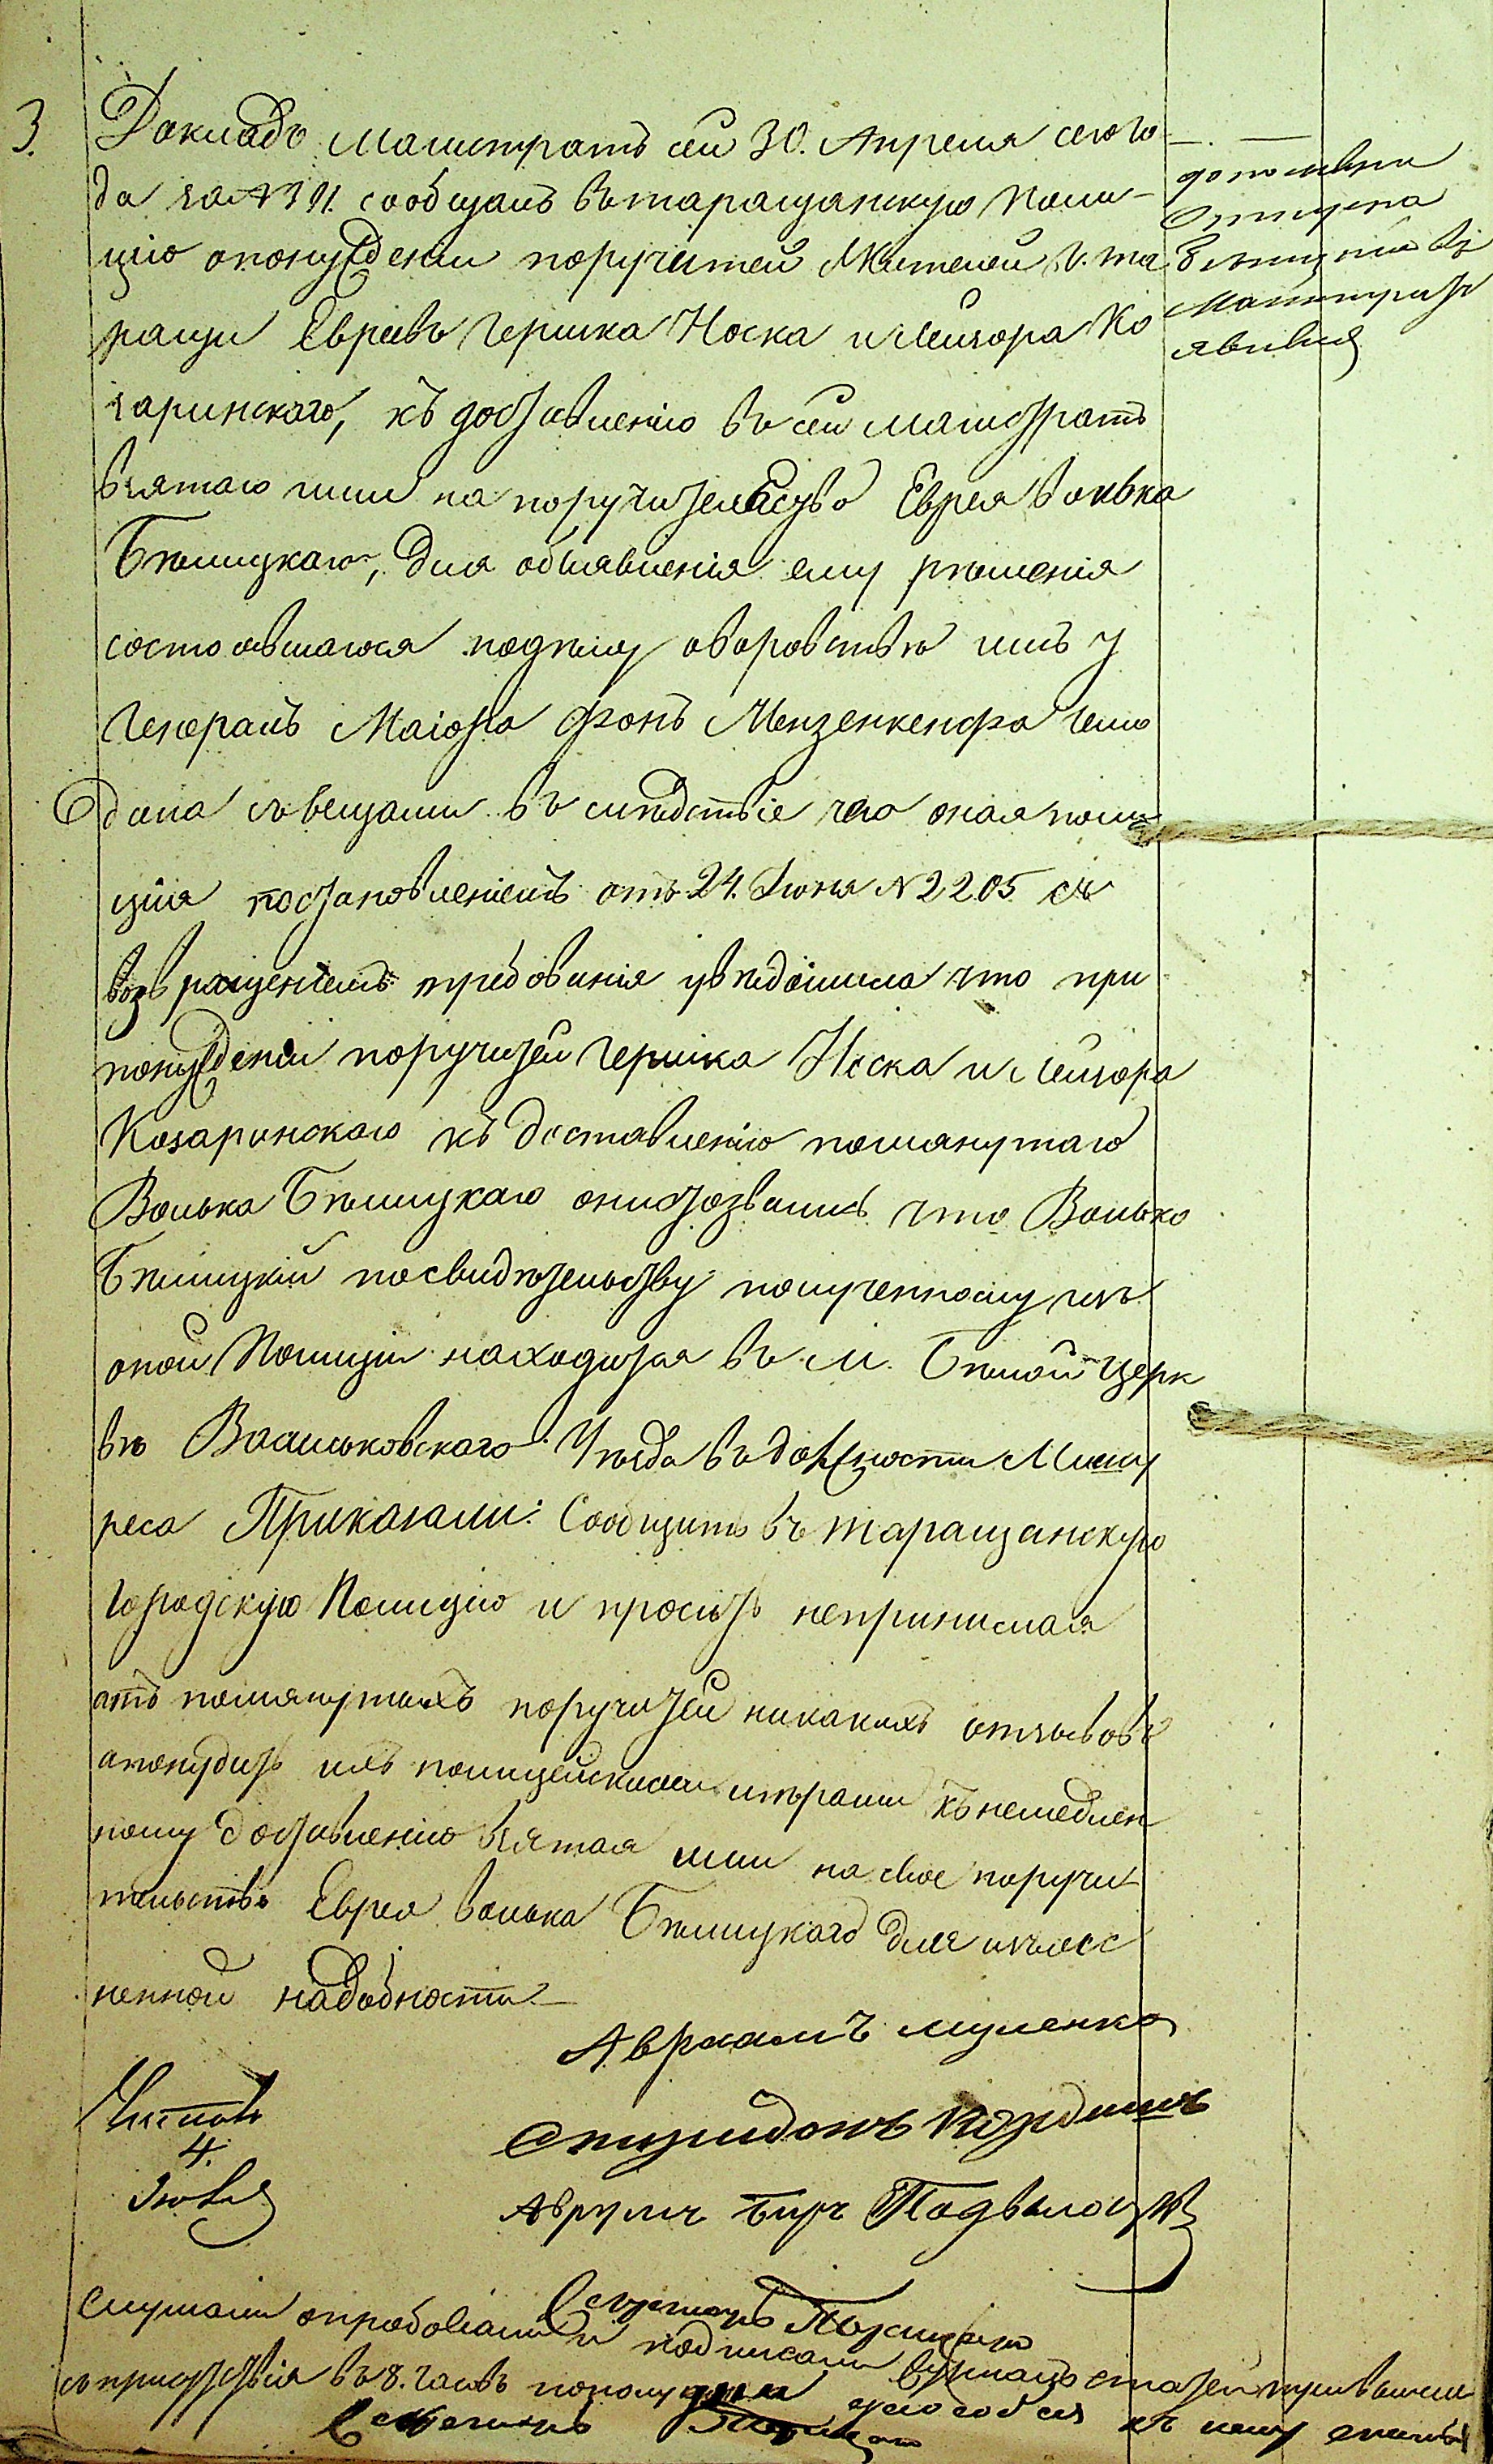 3.
Докладъ Магистратъ сей 30. Апреля сего го-
да за № 391. сообщалъ въ таращанскую поли-
цію опонужденіи поручителей Жителей г. та
ращи Евреевъ Гершка Носка и Лейзора Ко
заринскаго, къ доставленію въ сей магистратъ
взятаго ими на поручительство Еврея волька
Бѣлицкаго, для объявленія ему рѣшенія
состоявшагося подѣлу оворовствѣ имъ у
Генералъ Маіора фонъ Мензенкенфа чемо
дана съ вещами въ слѣдствіе чего оная поли
ція постановленіемъ отъ 24. Іюня № 2205 съ
возвращеніемъ требованія увѣдомила что при
понужденіи поручителей Гершка Носка и Лейзора
Козаринскаго къ доставленію помянутаго
Волька Бѣлицкаго они отозвались что Волько
Бѣлицкій по свидѣтельству полученному изъ
оной Полиціи находится въ м. Бѣлой-Церк
вѣ Васильковскаго Уѣзда въ должности Мишу
реса Приказали: Сообщить въ таращанскую
городскую Полицію и просить непринимая
отъ помянутыхъ поручителей никакихъ отзывовъ
апонудить ихъ полицейскими мѣрами къ немедлен
ному доставленію взятая ими на свое поручи
тельство Еврея волька Бѣлицкаго для изъясс
ненной надобности
Бѣлицкій въ
Магистратъ
явился
Авраамъ
Спиридонъ
Аврумъ Беръ Подвысоцкій
Читалъ
4.
Іюля
Секретарь
Слушали опробовали и подписали
съ присутствія въ 8. часовъ пополудни
Секретарь